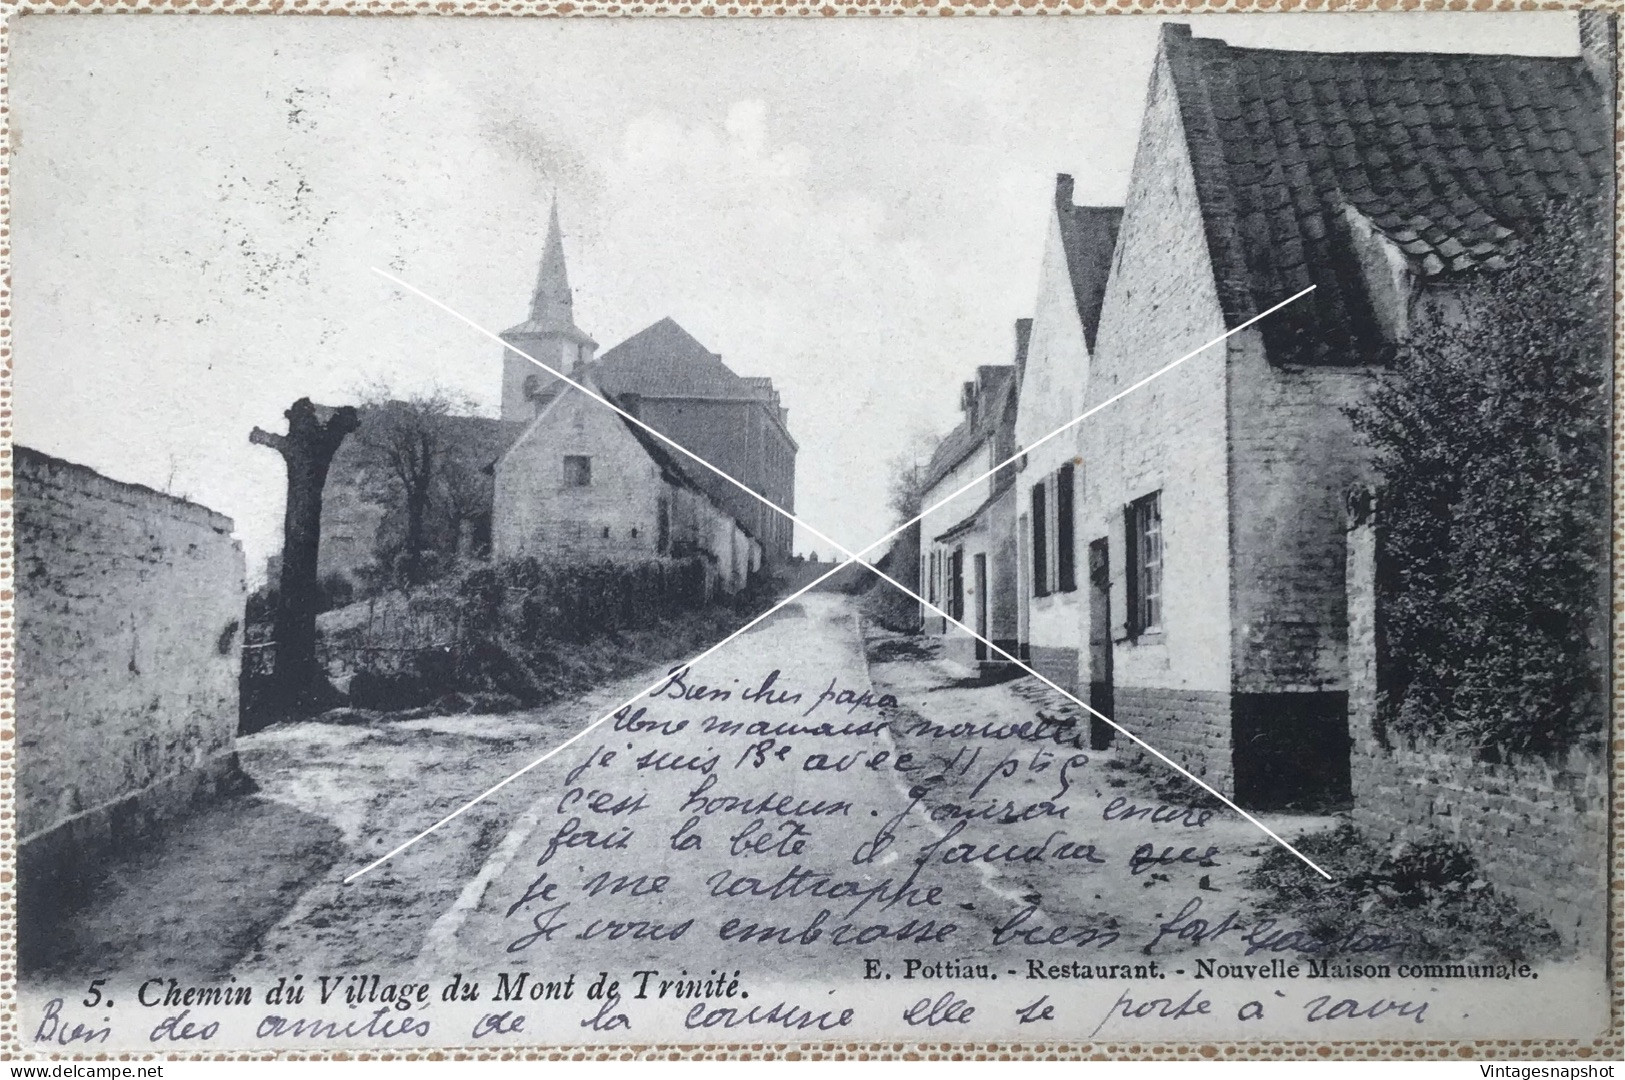 Bien cher papa
Une mauvaise nouvelle
je suis 13e avec 11 ptς
c'est honteux. J'aurai encore
fait la bête il faudra que
je me rattraphe.
Je vous embrasse bien fort Gaston
E. Pottiau. - Restaurant. - Nouvelle Maison communale.
5. Chemin du Village du Mont de Trinité.
Bien des amitiés de la cousine elle se porte à ravir.
Vintagesnapshot